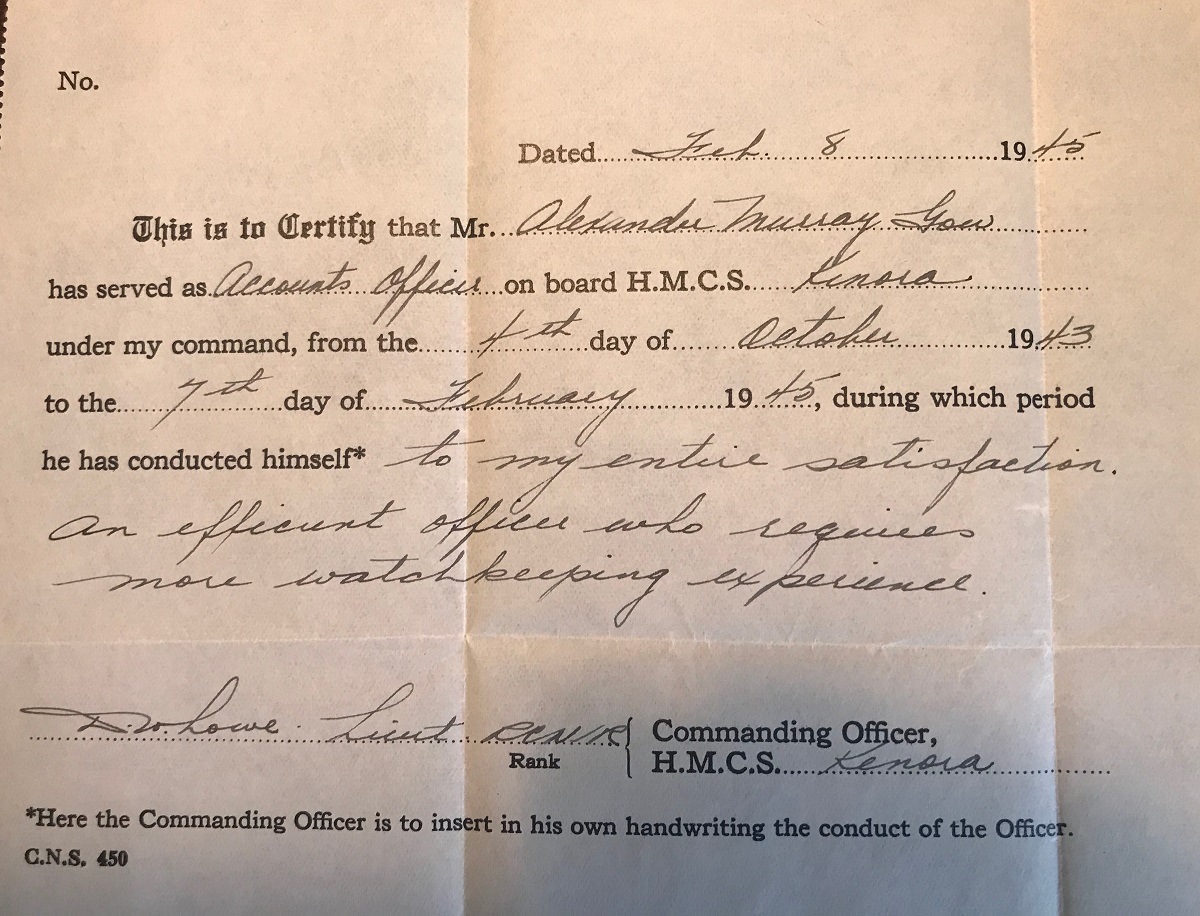 No.
Dated Feb. 8 1945
This is to Certify that Mr. Alexander Murray Gow
has served as Accounts Officer on board H.M.C.S. Kenora
under my command, from the 4th day of October 1943
to the 7th day of February 1945, during which period
he has conducted himself* to my entire satisfaction.
An efficient officer who requires
more watchkeeping experience.
D.W. Lowe. Lieut. RCNVR
Rank
Commanding Officer,
H.M.C.S. Kenora
*Here the Commanding Officer is to insert in his own handwriting the conduct of the Officer.
C.N.S. 450